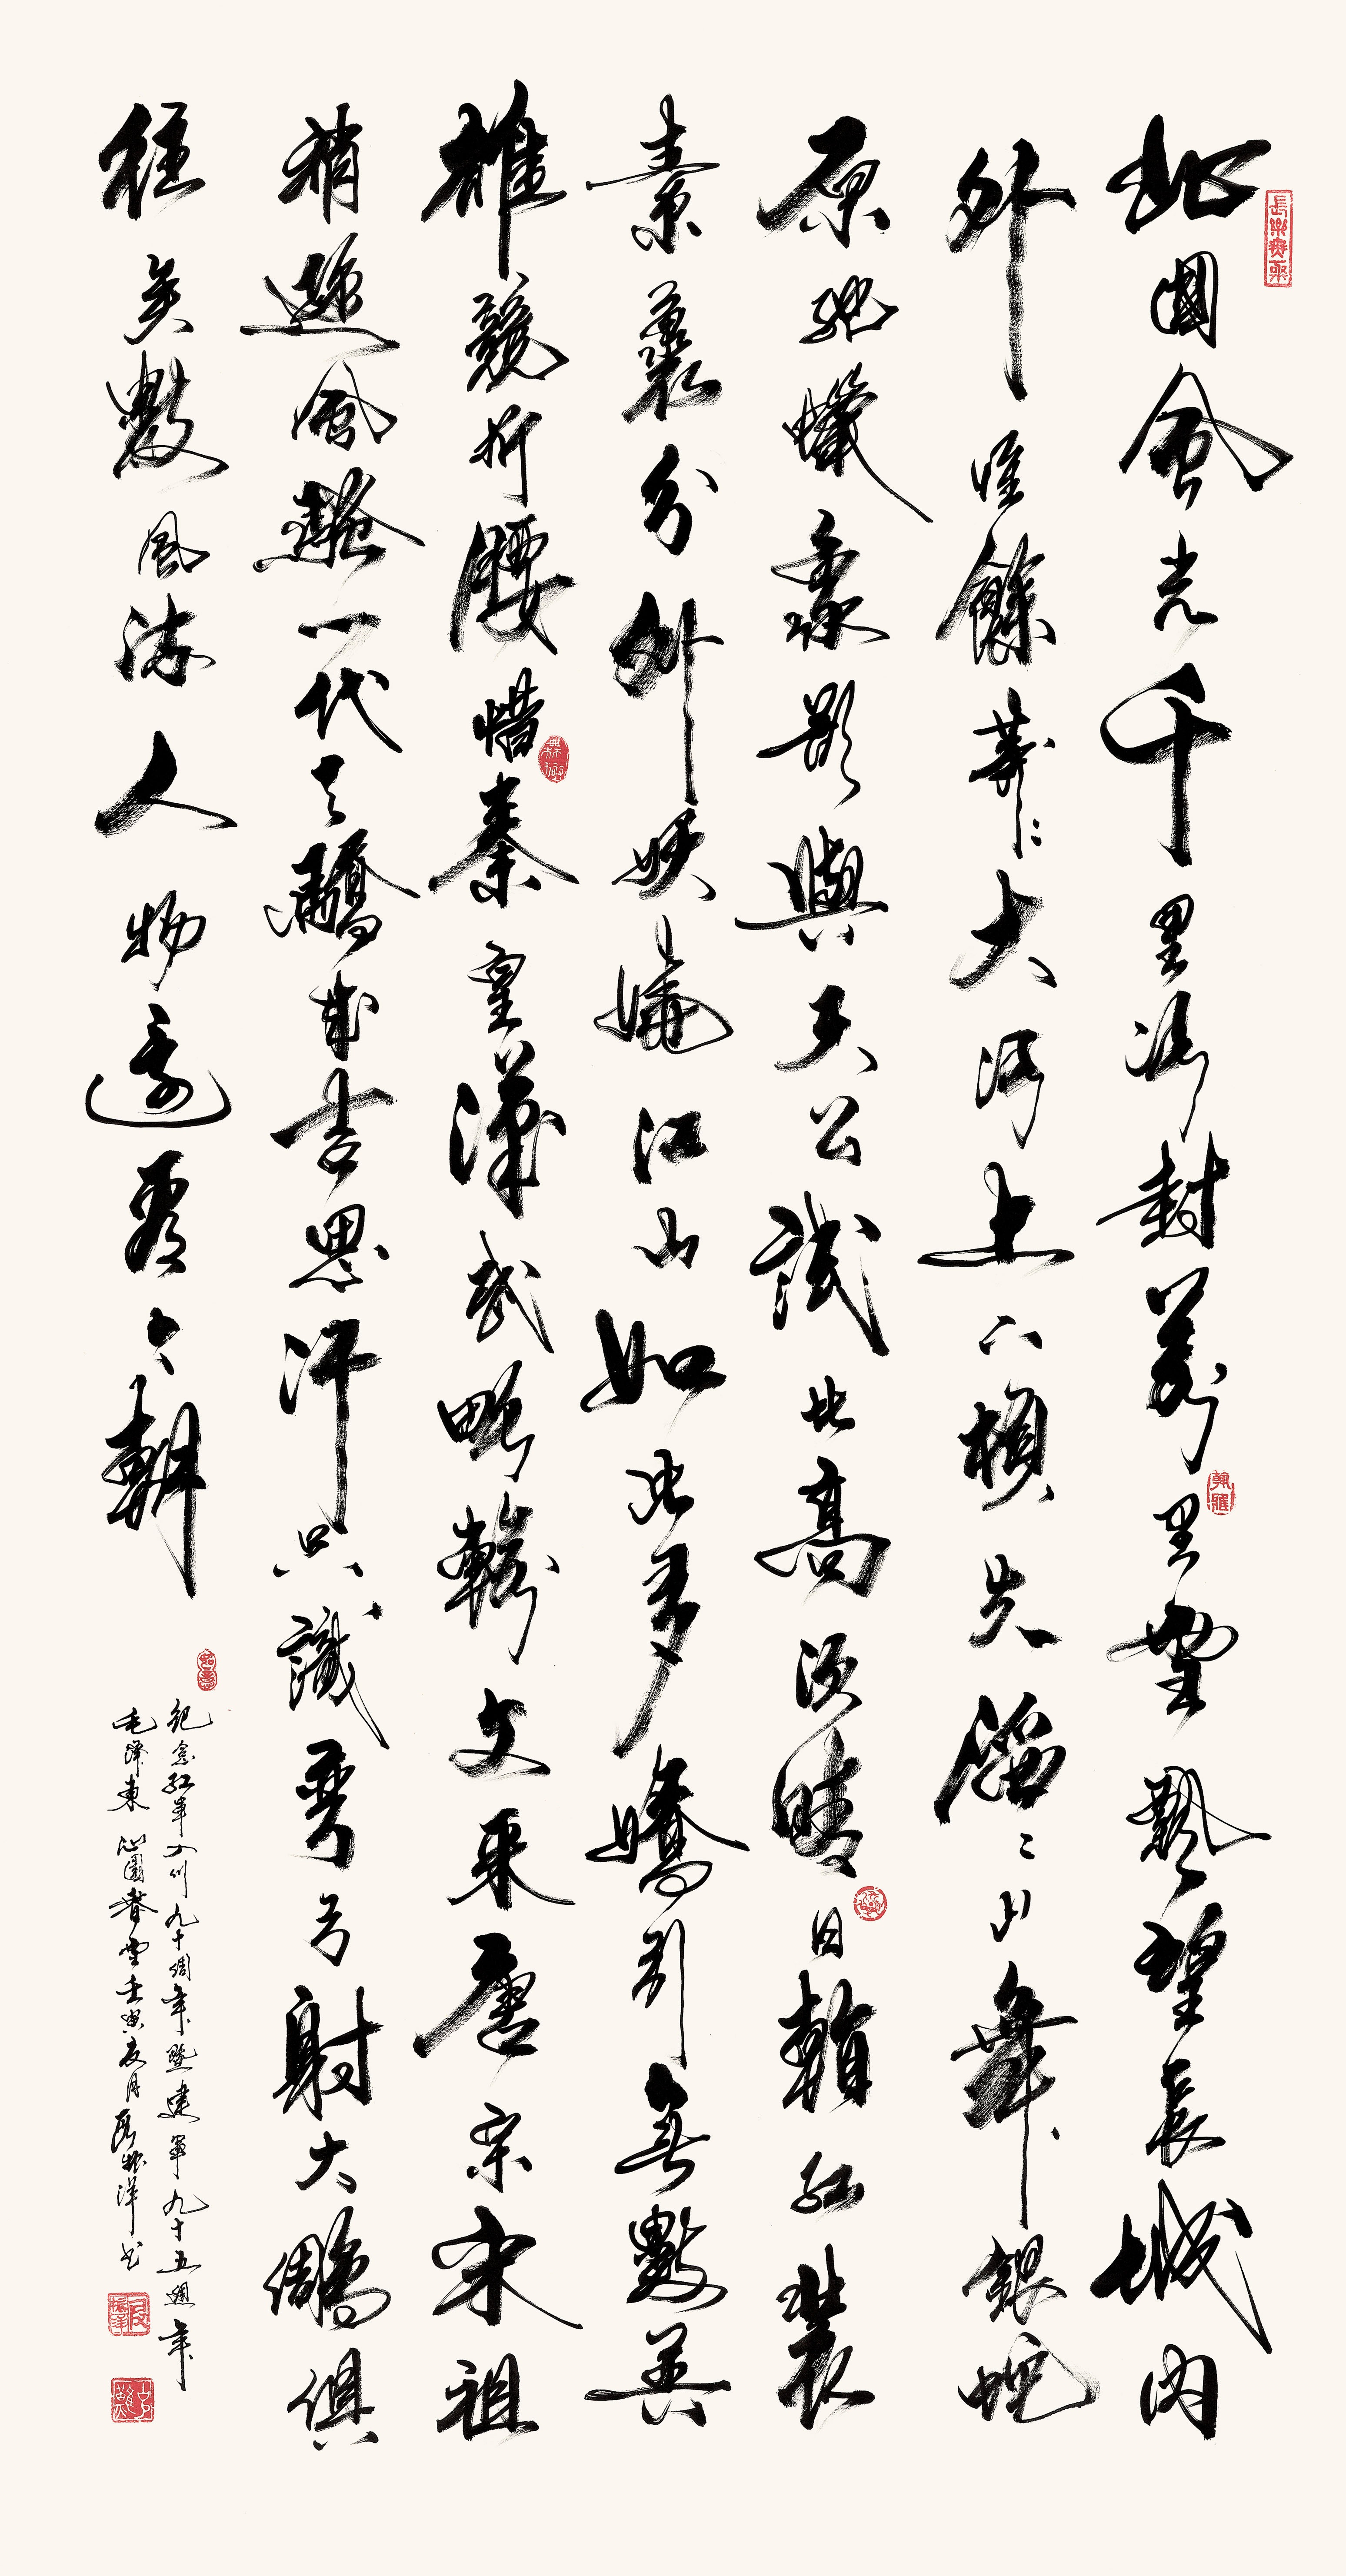 長樂無極
北國風光千里冰封萬里雪飄望長城内
外惟餘莽〻大河上下頓失滔〻山舞銀蛇
原馳蠟象欲與天公試比高須晴日紅裝
素裹分外妖嬈江山如此多嬌引無數英
雄競折腰惜秦皇漢武略輸文采唐宗宋祖
稍遜風騷一代天驕成吉思汗只識彎弓射大鵰俱
往矣數風流人物還看今朝
紀念紅軍入川九十週年暨建軍九十五週年
毛澤東沁園春雪壬寅夏月段振洋书